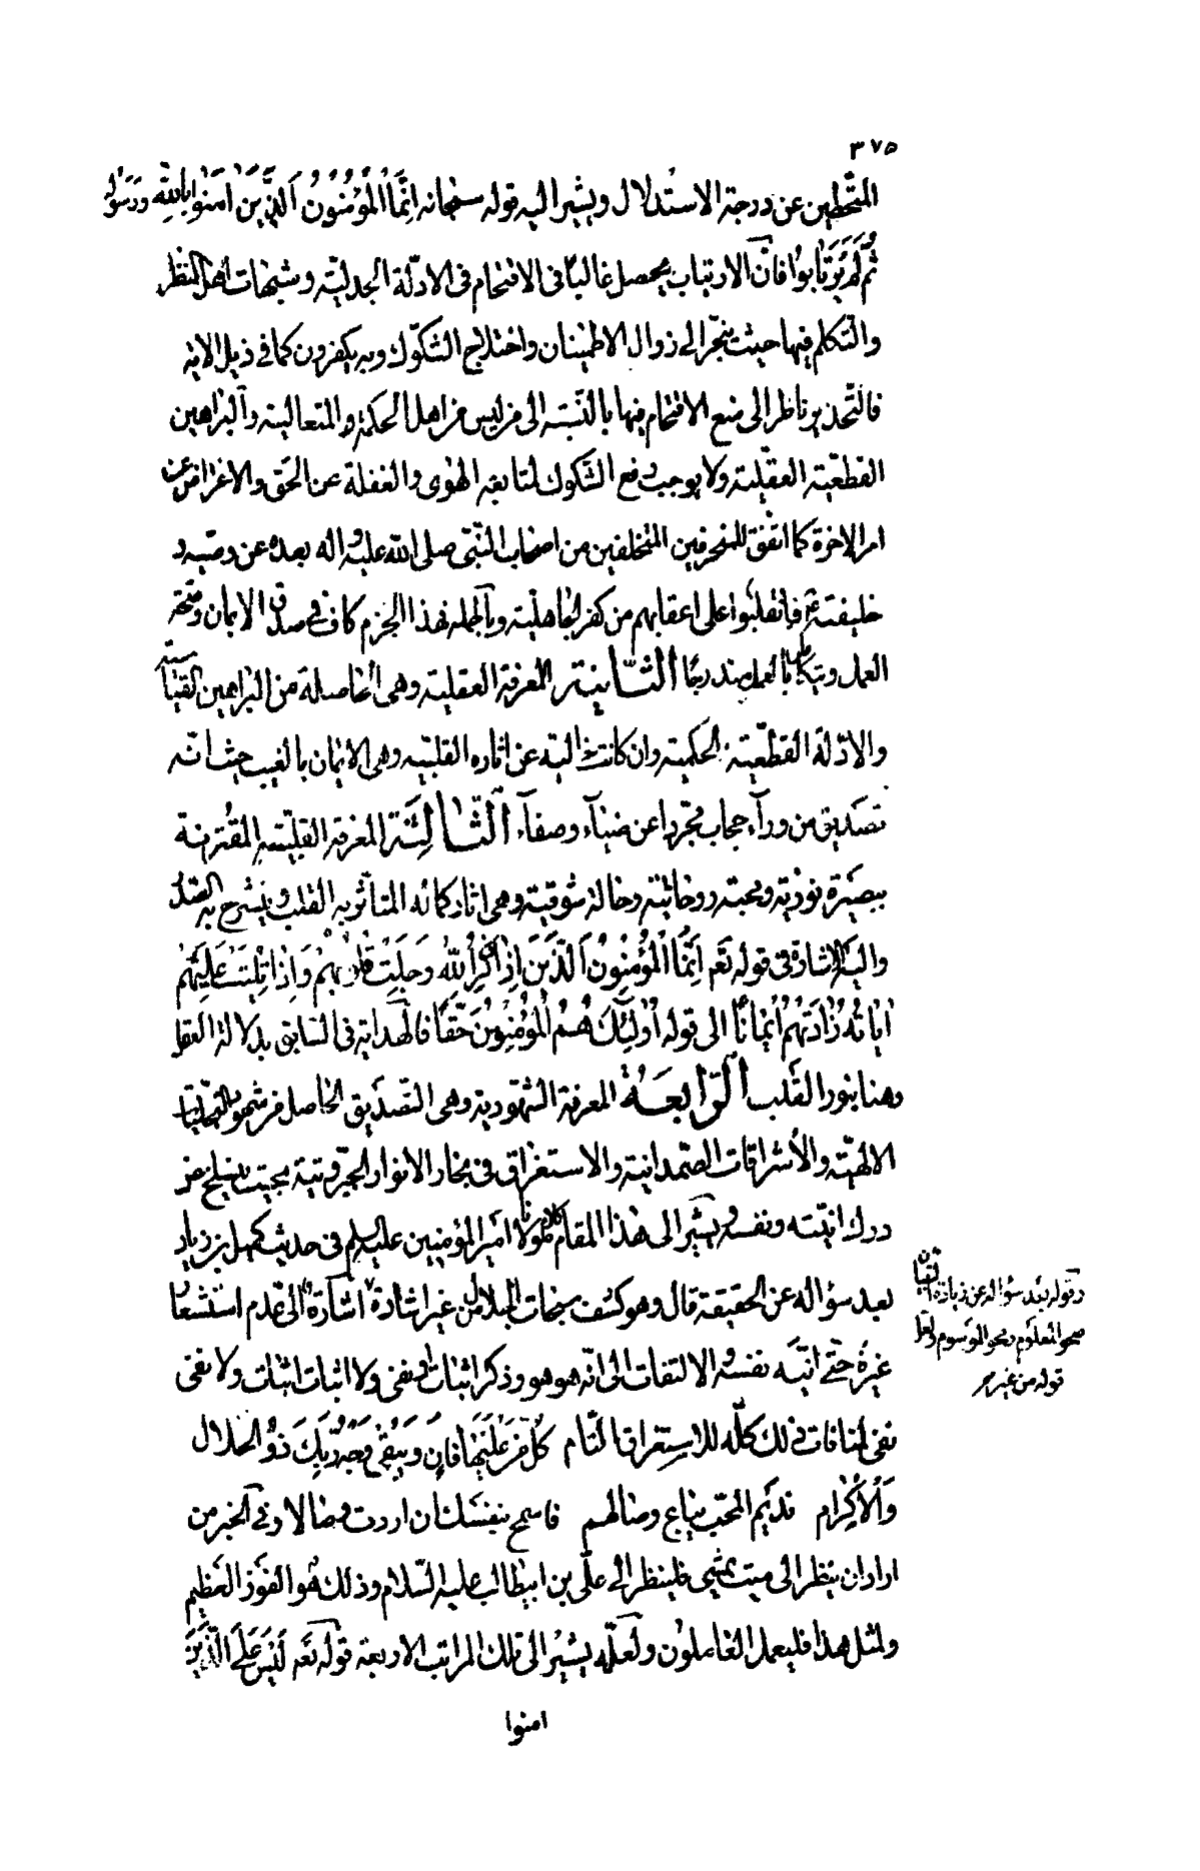 ٣٧٥
المنحطين عن درجة الاستدلال ويشير اليه قوله سبحانه اِنَّمَا الْمُؤْمِنُونَ اَلَّذِينَ اٰمَنُوا بِاللّٰهِ وَرَسُولِهِ
ثُمَّ لَمْ يَرْتَابُوا فانّ الارتياب يحصل غالبًا فى الاقتحام فى الادلّة الجدليّة وشبهات اهل النظر
والتّكلم فيها حيث ينجّر الى زوال الاطمينان واختلاج الشكوك وبه يكفرون كما فى ذيل الاية
فالتّحذير ناظر الى منع الاقتحام فيها بالنّسبة الى من ليس من اهل الحكمة والمتعالية والبراهين
القطعيّة العقليّة ولا يوجب دفع الشّكوك لمتابعة الهوى والغفلة عن الحق والاعراض عن
امر الاخرة كما اتفق للمنحرفين المتخلفين من اصحاب النّبى صلى الله عليه واله بعده عن وصيه و
خليفته فانقلبوا على اعقابهم من كفر الجاهليّة وبالجملة فهذا الجزم كاف فى صدق الايمان وصحّة
العمل ويتكامل بالعمل متدرجًا الثّانية المعرفة العقلية وهى الحاصلة من البراهين القياسية
والادلّة القطعيّة الحكمية وان كانت خالية عن اثاره القلبيّه وهى الايمان بالغيب حيث انّه
تصديق من وراء حجاب مجرّدا عن ضياء وصفاء الثّالِثَة المعرفة القلبيّة المقترنة
ببصيرة نوريّة ومحبّة روحانيّة وحالة شوقية وهى اثار كماله المتأثر به القلب وينشرح به الصّدر
واليه الاشارة فى قوله تعَ اِنَّمَا الْمُؤْمِنُونَ اَلَّذِينَ اِذَا ذُكِرَ اللّٰهُ وَجِلَتْ قُلُوبُهُمْ وَاِذَا تُلِيَتْ عَلَيْهِمْ
اٰيَاتُهُ زَادَتْهُمْ اِيْمَانًا الى قوله اُولٰئِكَ هُمُ الْمُؤْمِنُونَ حَقًّا فالهداية فى السّابق بدلالة العقل
وهنا بنور القلب الرّابعَةُ المعرفة الشّهودية وهى التّصديق الحاصل من شهود التجليات
الالهيّة والأشراقات الصّمدانية والاستغراق فى بحار الانوار الجبروتية بحيث ينسلخ عن
درك انيّته ونفسه ويشير الى هذا المقام كلام مولانا امير المؤمنين عليه السلم فى حديث كميل بن زياد
بعد سؤاله عن الحقيقة قال وهو كشف سبحات الجلال من غير اشارة اشارة الى عدم استشعار
غيره حتّى انيّه نفسه والالتفات الى انّه هو هو وذكر اثبات او نفى ولا اثبات اثبات ولا نفى
نفى لمنافات ذلك كلّه للاستغراق التّام كُلُّ مَنْ عَلَيْهَا فَانٍ وَيَبْقٰى وَجْهُ رَبِّكَ ذُو الْجَلَالِ
وَالْاِكْرَامِ قديم المحبّ يباع وصالهم فاسمح بنفسك ان اردت وصالا وفى الخبر من
اراد ان ينظر الى ميت يمشى فلينظر الى علىّ بن ابيطالب عليه السّلام وذلك هُو الفوز العظيم
ولمثل هذا فليعمل العاملون ولعلّه يشير الى تلك المراتب الاربعة قوله تعَ لَيْسَ عَلَى الَّذِينَ
امنوا
وقوله بعد سؤاله عن زيادة البيان
صحو المعلوم ومحو الموسوم
قوله من غير